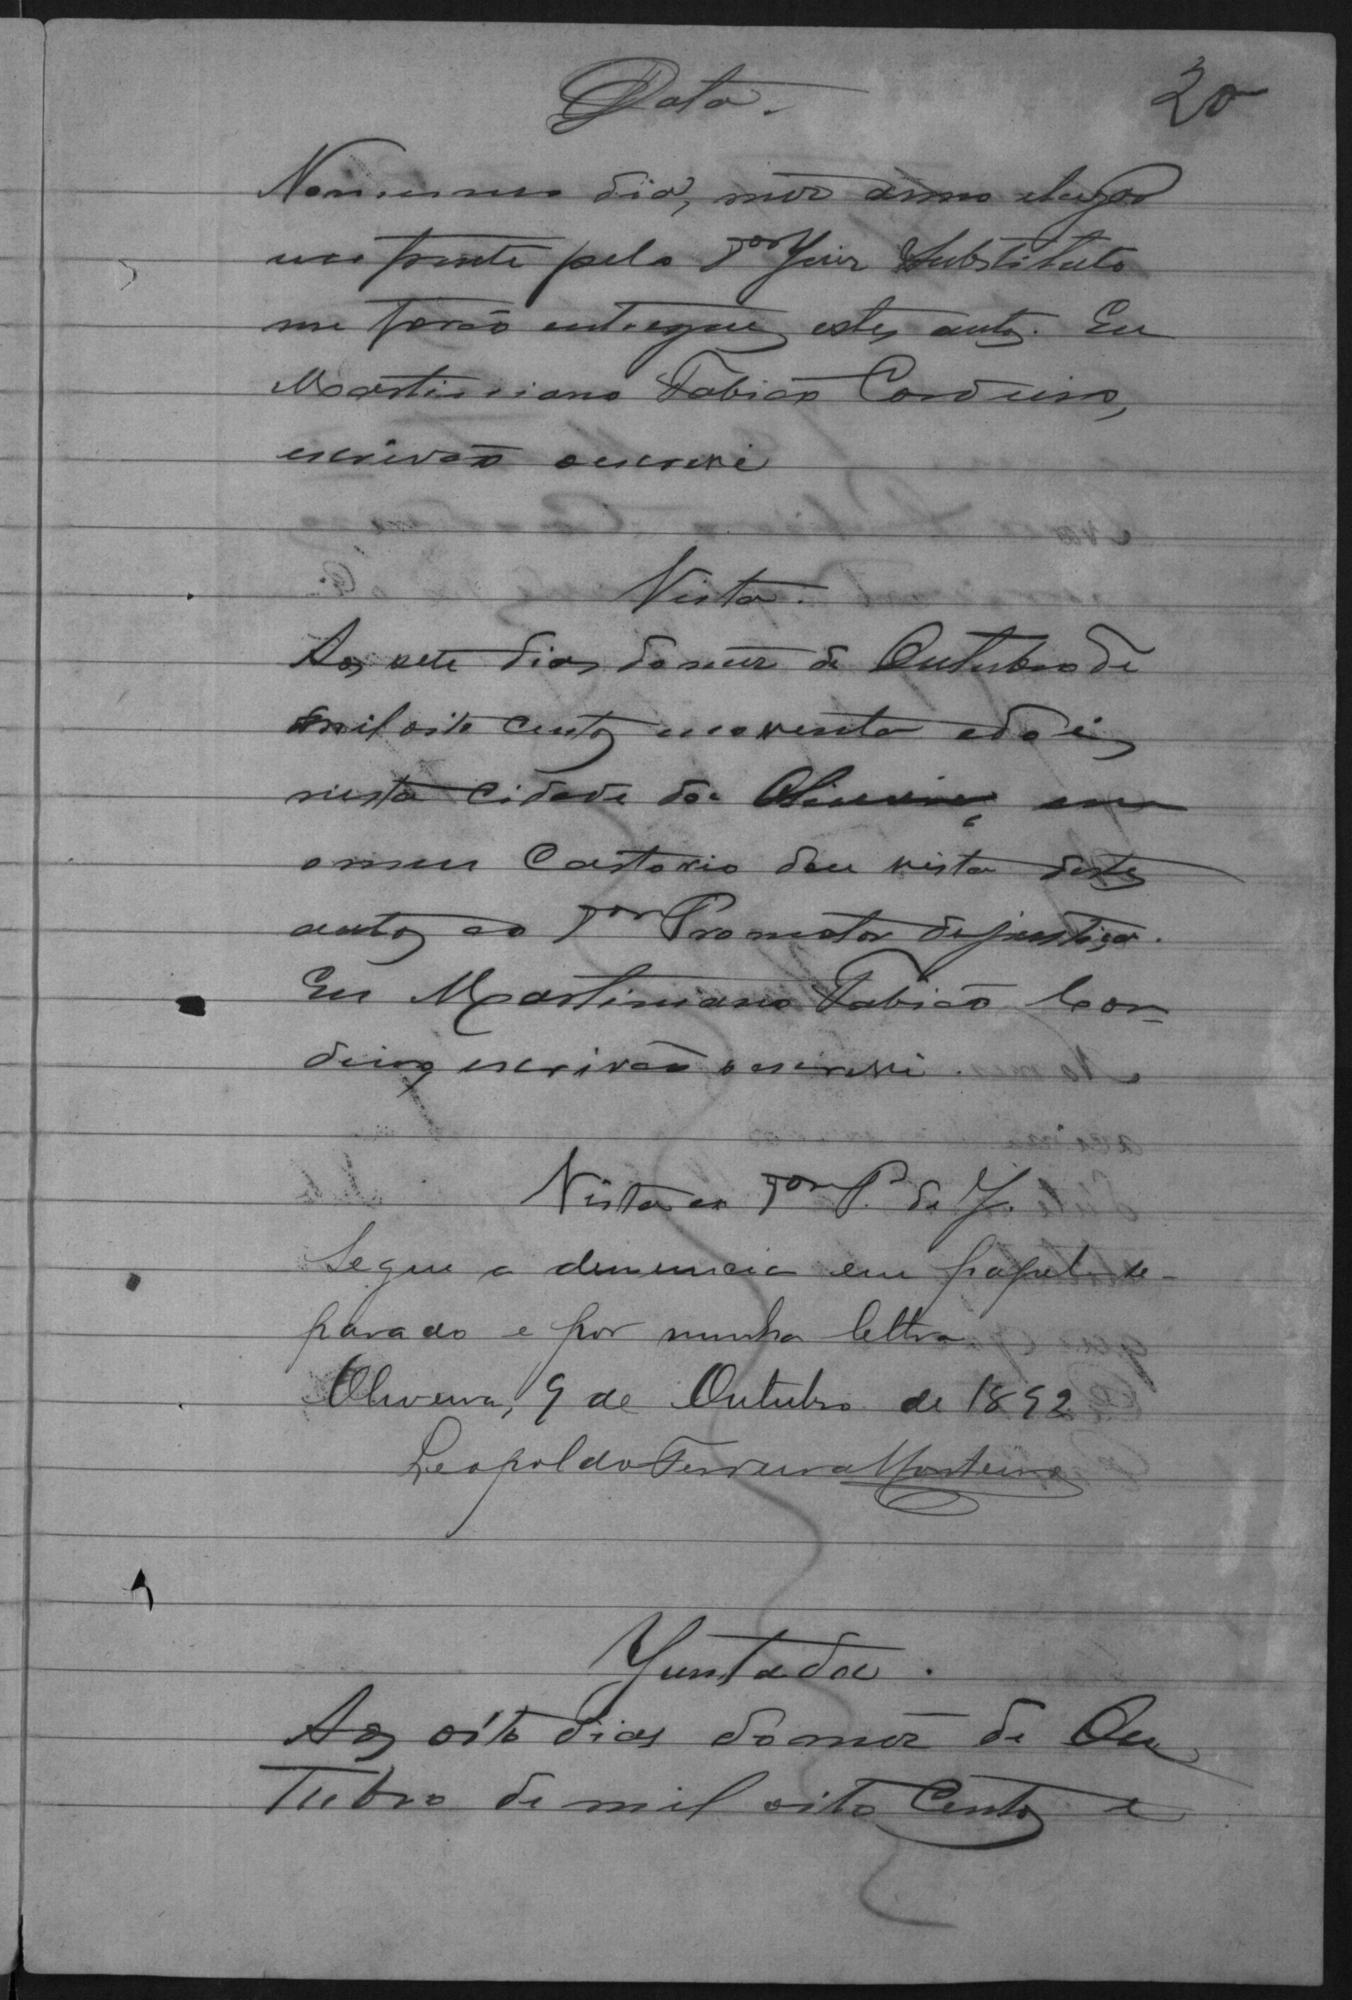 20
Data.
No mesmo dia, mez anno e lugar
no fronte pelo Dor Juiz Substituto
me forão entregues estes autos. Eu
Martiniano Fabião Cordeiro,
escrivão o escrevi
Vista.
Aos sete dias do mez de Outubro de
mil oito centos noventa e dois
nesta cidade da Oliveira, em
o meu Cartorio dou vista destes
autos ao Dor Promotor de justiça.
Eu Martiniano Fabião Cor-
deiro, escrivão o escrevi.
Vista ao Dor P. de J.
Segue a denuncia em papel se-
parado e por minha lettra.
Oliveira, 9 de Outubro de 1892
Leopoldo Ferreira Monteiro
Juntada.
Aos oito dias do mez de Ou
tubro de mil oito centos e